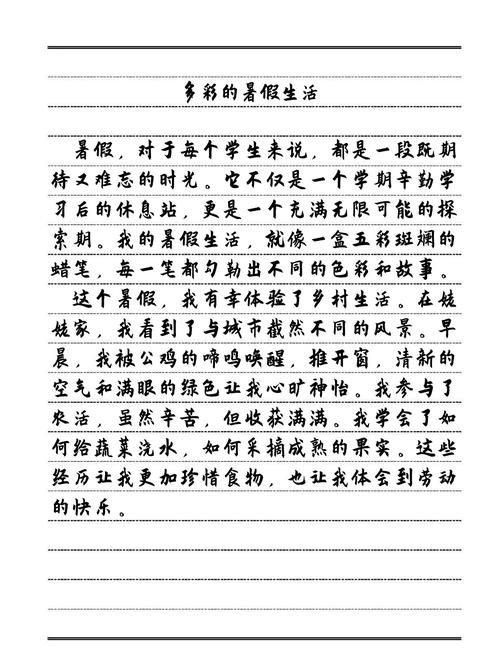 多彩的暑假生活
暑假，对于每个学生来说，都是一段既期
待又难忘的时光。它不仅是一个学期辛勤学
习后的休息站，更是一个充满无限可能的探
索期。我的暑假生活，就像一盒五彩斑斓的
蜡笔，每一笔都勾勒出不同的色彩和故事。
这个暑假，我有幸体验了乡村生活。在姥
姥家，我看到了与城市截然不同的风景。早
晨，我被公鸡的啼鸣唤醒，推开窗，清新的
空气和满眼的绿色让我心旷神怡。我参与了
农活，虽然辛苦，但收获满满。我学会了如
何给蔬菜浇水，如何采摘成熟的果实。这些
经历让我更加珍惜食物，也让我体会到劳动
的快乐。